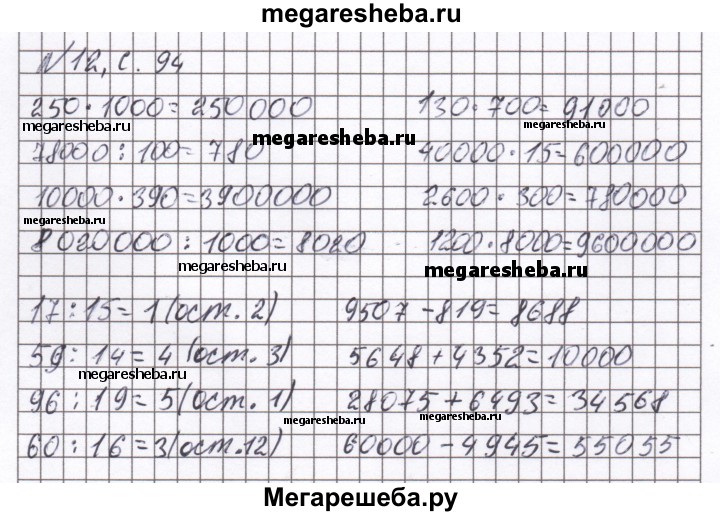 megaresheba.ru
№12, с. 94
250·1000=250000 130·700=91000
megaresheba.ru megaresheba.ru megaresheba.ru
78000:100=780 40000·15=600000
10000·390=3900000 2600·300=780000
megaresheba.ru
8020000:1000=8020 1200·8000=9600000
megaresheba.ru megaresheba.ru
17:15=1(ост.2) 9507-819=8688
59:14=4(ост.3) 5648+4352=10000
megaresheba.ru
96:19=5(ост.1) 28075+6493=34568
megaresheba.ru megaresheba.ru
60:16=3(ост.12) 60000-4945=55055
Мегарешеба.ру